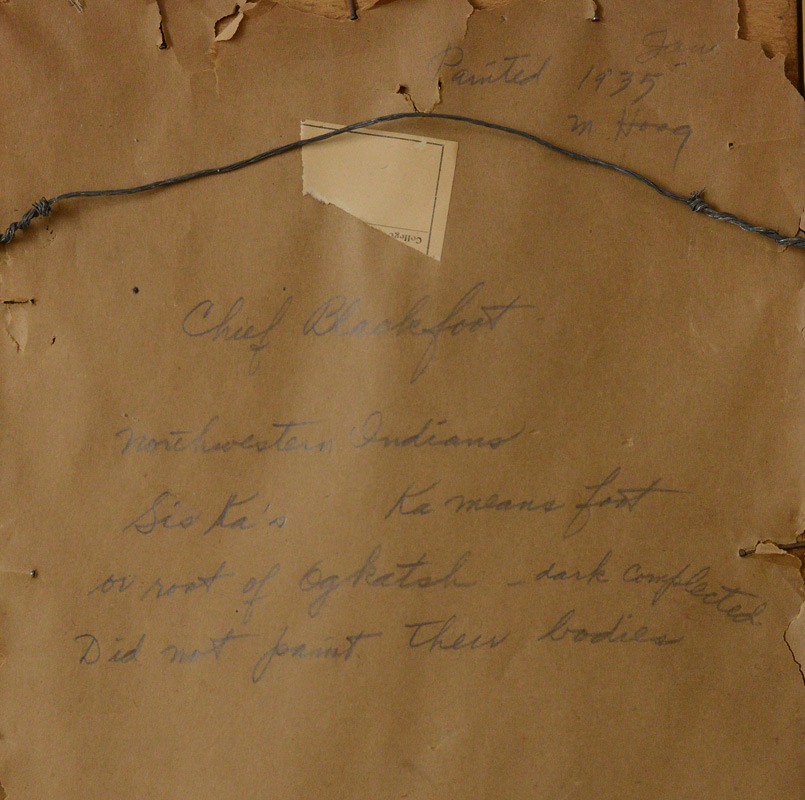 Jan
Painted 1935
M Hoag
College
Chief Blackfoot
Northwestern Indians
Sis Ka's Ka means foot
or root of Ogkatsh - dark complected
Did not paint their bodies